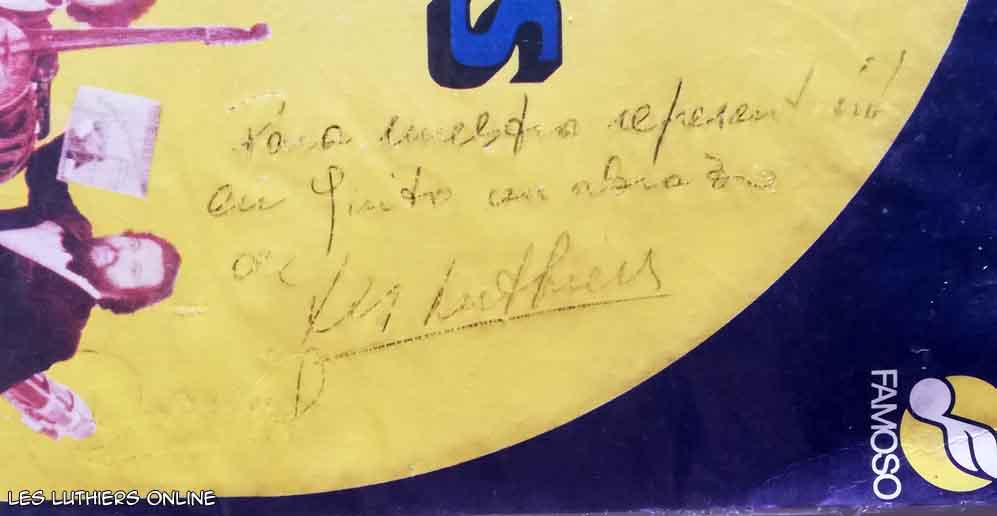 S
Para nuestro represent
en Quito un abrazo
de
Les Luthiers
FAMOSO
LES LUTHIERS ONLINE